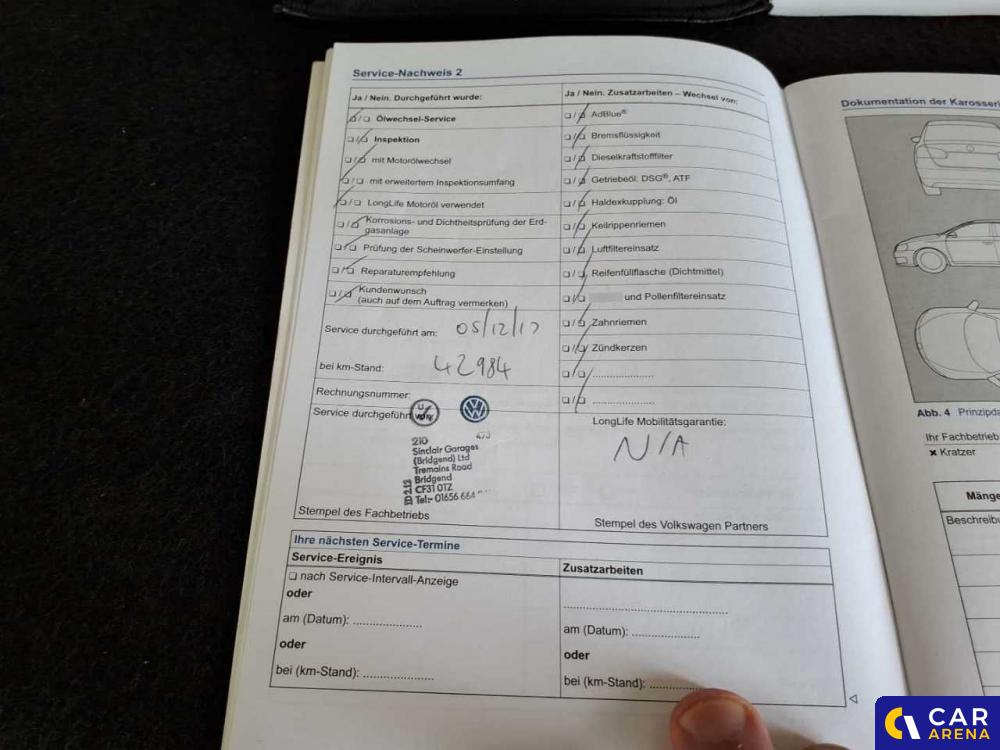 Service-Nachweis 2
Ja / Nein. Durchgeführt wurde:
❏/❏ Ölwechsel-Service
❏/❏ Inspektion
❏/❏ mit Motorölwechsel
❏/❏ mit erweitertem Inspektionsumfang
❏/❏ LongLife Motoröl verwendet
❏/❏ Korrosions- und Dichtheitsprüfung der Erd-
gasanlage
❏/❏ Prüfung der Scheinwerfer-Einstellung
❏/❏ Reparaturempfehlung
❏/❏ Kundenwunsch
(auch auf dem Auftrag vermerken)
Service durchgeführt am: 05/12/17
bei km-Stand: 42984
Rechnungsnummer:
Service durchgeführt
210
Sinclair Garages
(Bridgend) Ltd
Tremains Road
Bridgend
CF31 0TZ
Tel:- 01656 664
Stempel des Fachbetriebs
Ja / Nein. Zusatzarbeiten – Wechsel von:
❏/❏ AdBlue®
❏/❏ Bremsflüssigkeit
❏/❏ Dieselkraftstofffilter
❏/❏ Getriebeöl: DSG®, ATF
❏/❏ Haldexkupplung: Öl
❏/❏ Keilrippenriemen
❏/❏ Luftfiltereinsatz
❏/❏ Reifenfüllflasche (Dichtmittel)
❏/❏ und Pollenfiltereinsatz
❏/❏ Zahnriemen
❏/❏ Zündkerzen
❏/❏ ....................
❏/❏ ....................
LongLife Mobilitätsgarantie:
N/A
Stempel des Volkswagen Partners
Ihre nächsten Service-Termine
Service-Ereignis
❏ nach Service-Intervall-Anzeige
oder
am (Datum): ....................
oder
bei (km-Stand): ....................
Zusatzarbeiten
..................................................
am (Datum): ....................
oder
bei (km-Stand): ....................
Dokumentation der
Abb. 4
Ihr Fachbetrieb
× Kratzer
CAR
ARENA